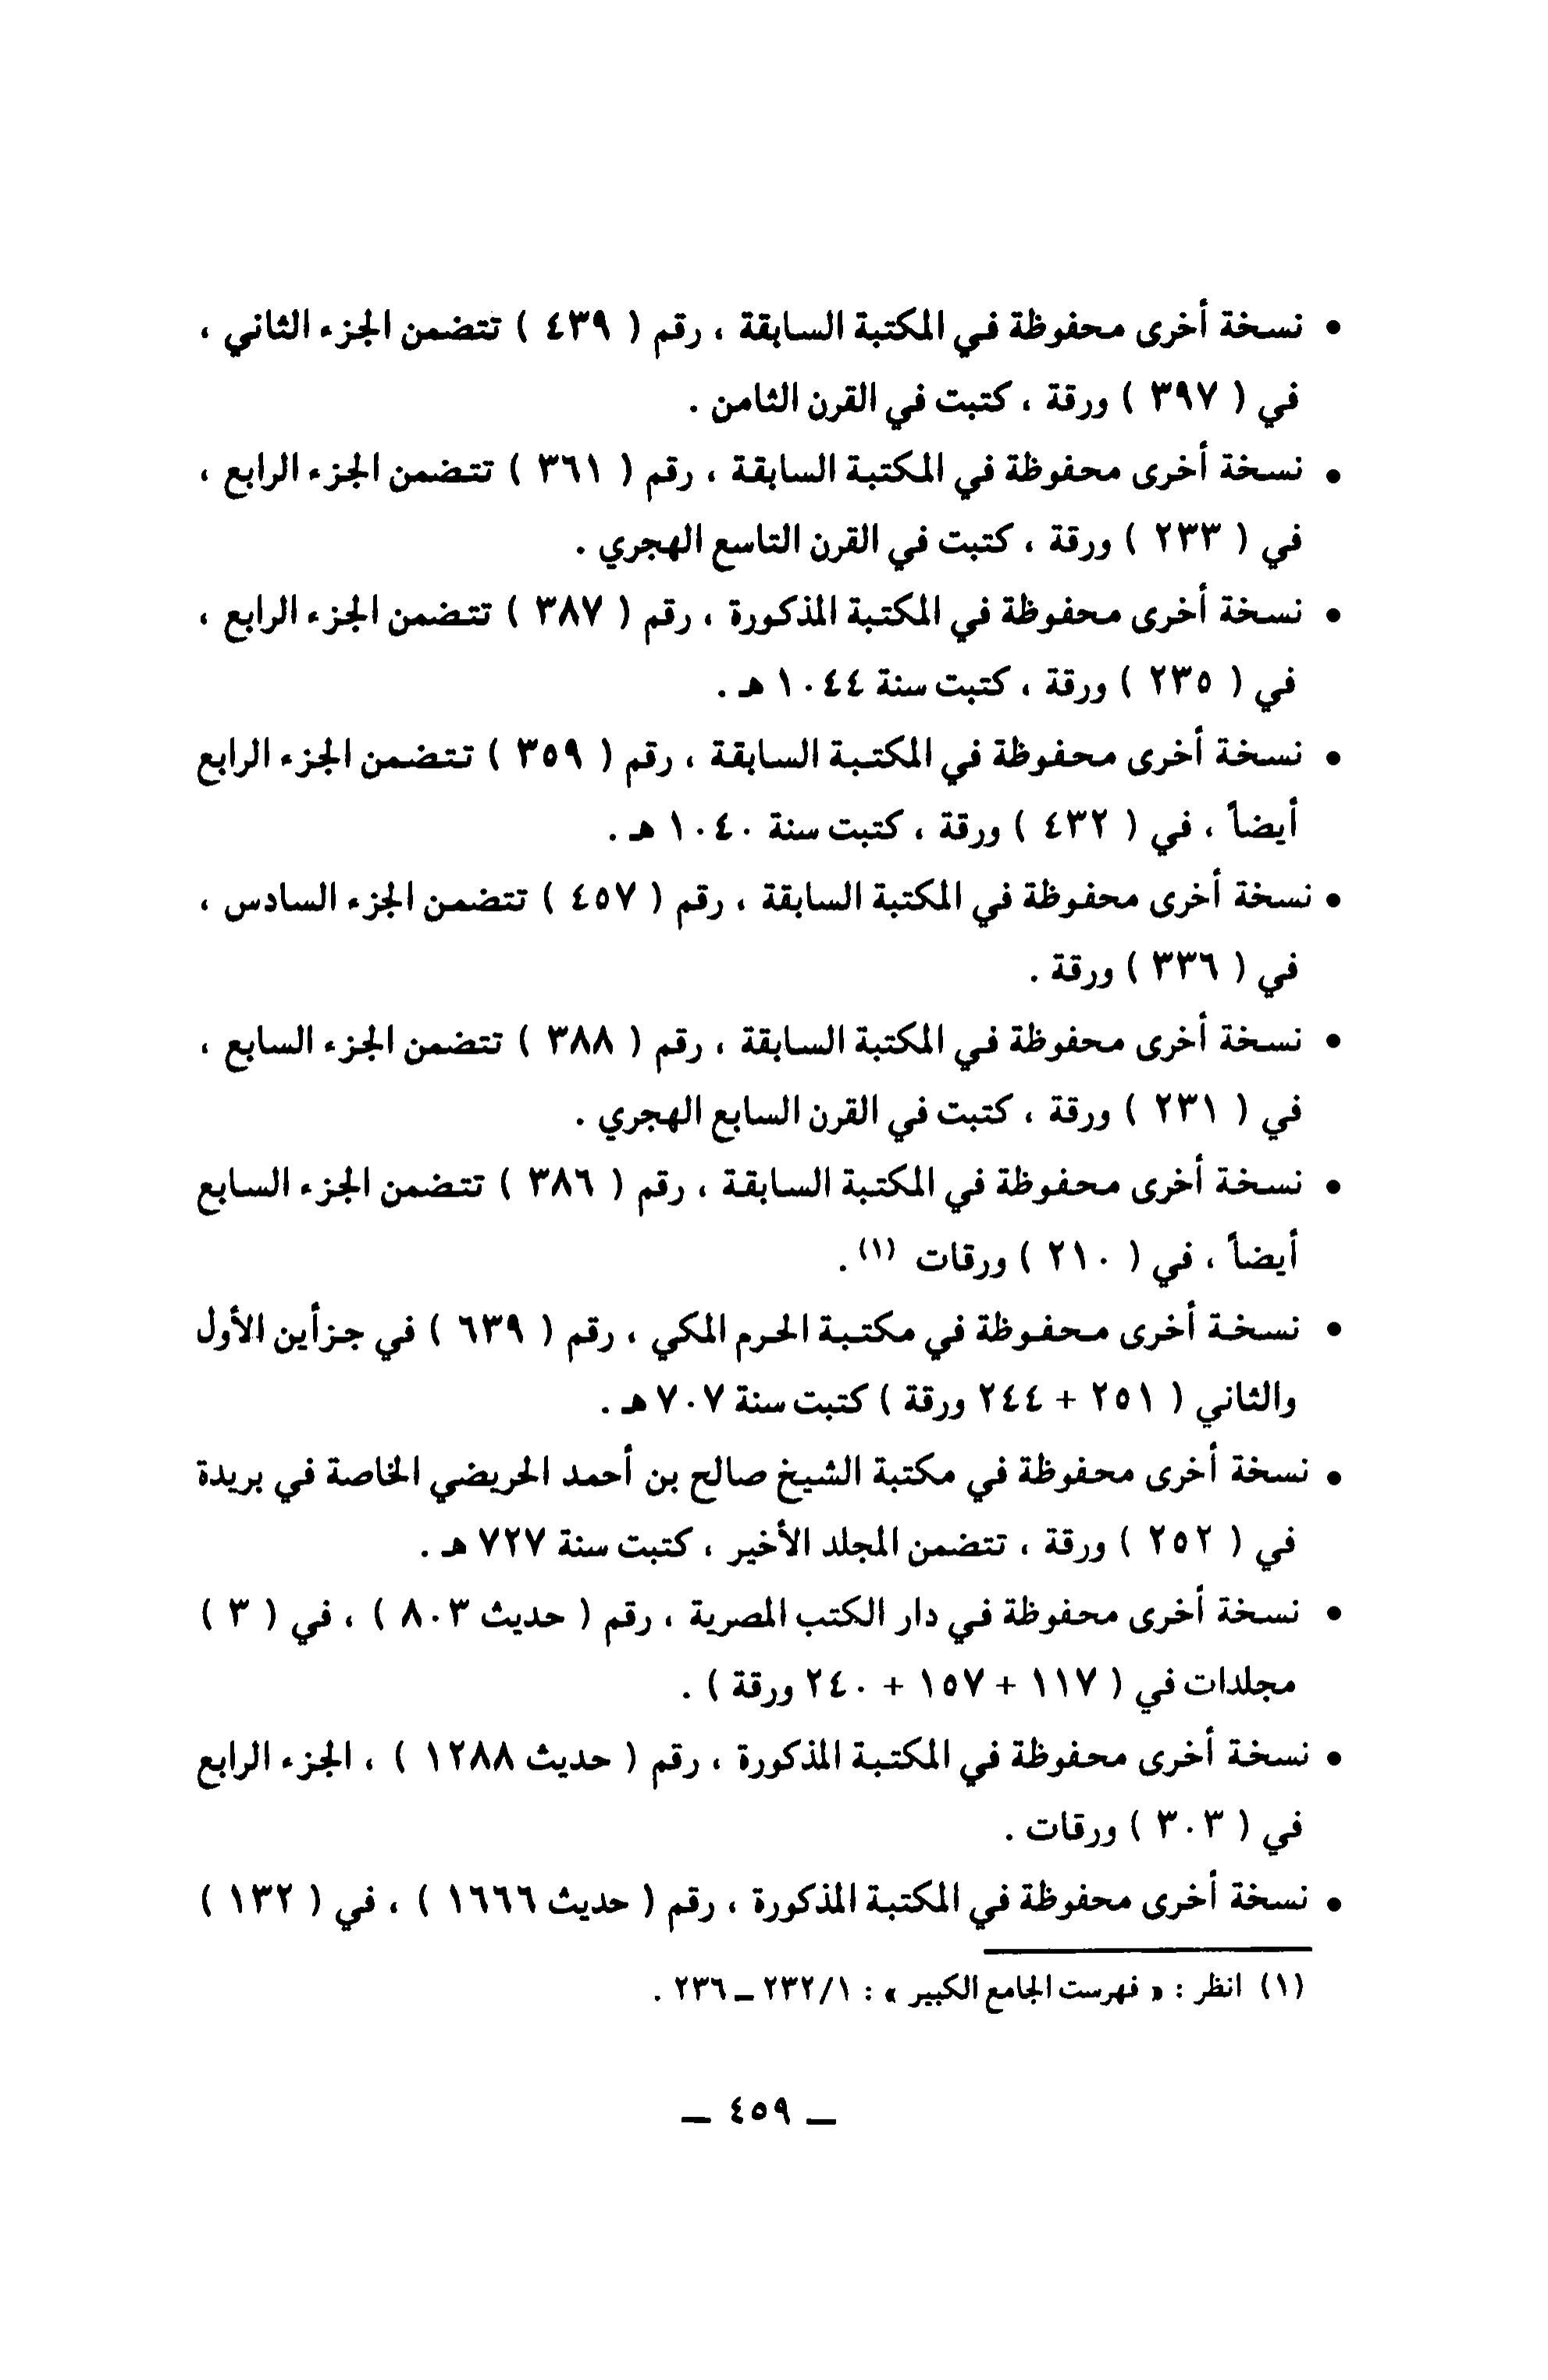 • نسخة أخرى محفوظة في المكتبة السابقة ، رقم ( ٤٣٩ ) تتضمن الجزء الثاني ،
في ( ٣٩٧ ) ورقة ، كتبت في القرن الثامن .
• نسخة أخرى محفوظة في المكتبة السابقة ، رقم ( ٣٦١ ) تتضمن الجزء الرابع ،
في ( ٢٣٣ ) ورقة ، كتبت في القرن التاسع الهجري .
• نسخة أخرى محفوظة في المكتبة المذكورة ، رقم ( ٣٨٧ ) تتضمن الجزء الرابع ،
في ( ٢٣٥ ) ورقة ، كتبت سنة ١٠٤٤ هـ .
• نسخة أخرى محفوظة في المكتبة السابقة ، رقم ( ٣٥٩ ) تتضمن الجزء الرابع
أيضاً ، في ( ٤٣٢ ) ورقة ، كتبت سنة ١٠٤٠ هـ .
• نسخة أخرى محفوظة في المكتبة السابقة ، رقم ( ٤٥٧ ) تتضمن الجزء السادس ،
في ( ٣٣٦ ) ورقة .
• نسخة أخرى محفوظة في المكتبة السابقة ، رقم ( ٣٨٨ ) تتضمن الجزء السابع ،
في ( ٢٣١ ) ورقة ، كتبت في القرن السابع الهجري .
• نسخة أخرى محفوظة في المكتبة السابقة ، رقم ( ٣٨٦ ) تتضمن الجزء السابع
أيضاً ، في ( ٢١٠ ) ورقات (١) .
• نسخة أخرى محفوظة في مكتبة الحرم المكي ، رقم ( ٦٣٩ ) في جزأين الأول
والثاني ( ٢٥١ + ٢٤٤ ورقة ) كتبت سنة ٧٠٧ هـ .
• نسخة أخرى محفوظة في مكتبة الشيخ صالح بن أحمد الحريضي الخاصة في بريدة
في ( ٢٥٢ ) ورقة ، تتضمن المجلد الأخير ، كتبت سنة ٧٢٧ هـ .
• نسخة أخرى محفوظة في دار الكتب المصرية ، رقم ( حديث ٨٠٣ ) ، في ( ٣ )
مجلدات في ( ١١٧ + ١٥٧ + ٢٤٠ ورقة ) .
• نسخة أخرى محفوظة في المكتبة المذكورة ، رقم ( حديث ١٢٨٨ ) ، الجزء الرابع
في ( ٣٠٣ ) ورقات .
• نسخة أخرى محفوظة في المكتبة المذكورة ، رقم ( حديث ١٦٦٦ ) ، في ( ١٣٢ )
(١) انظر : « فهرست الجامع الكبير » : ٢٣٢/١ ــ ٢٣٦ .
ــ ٤٥٩ ــ